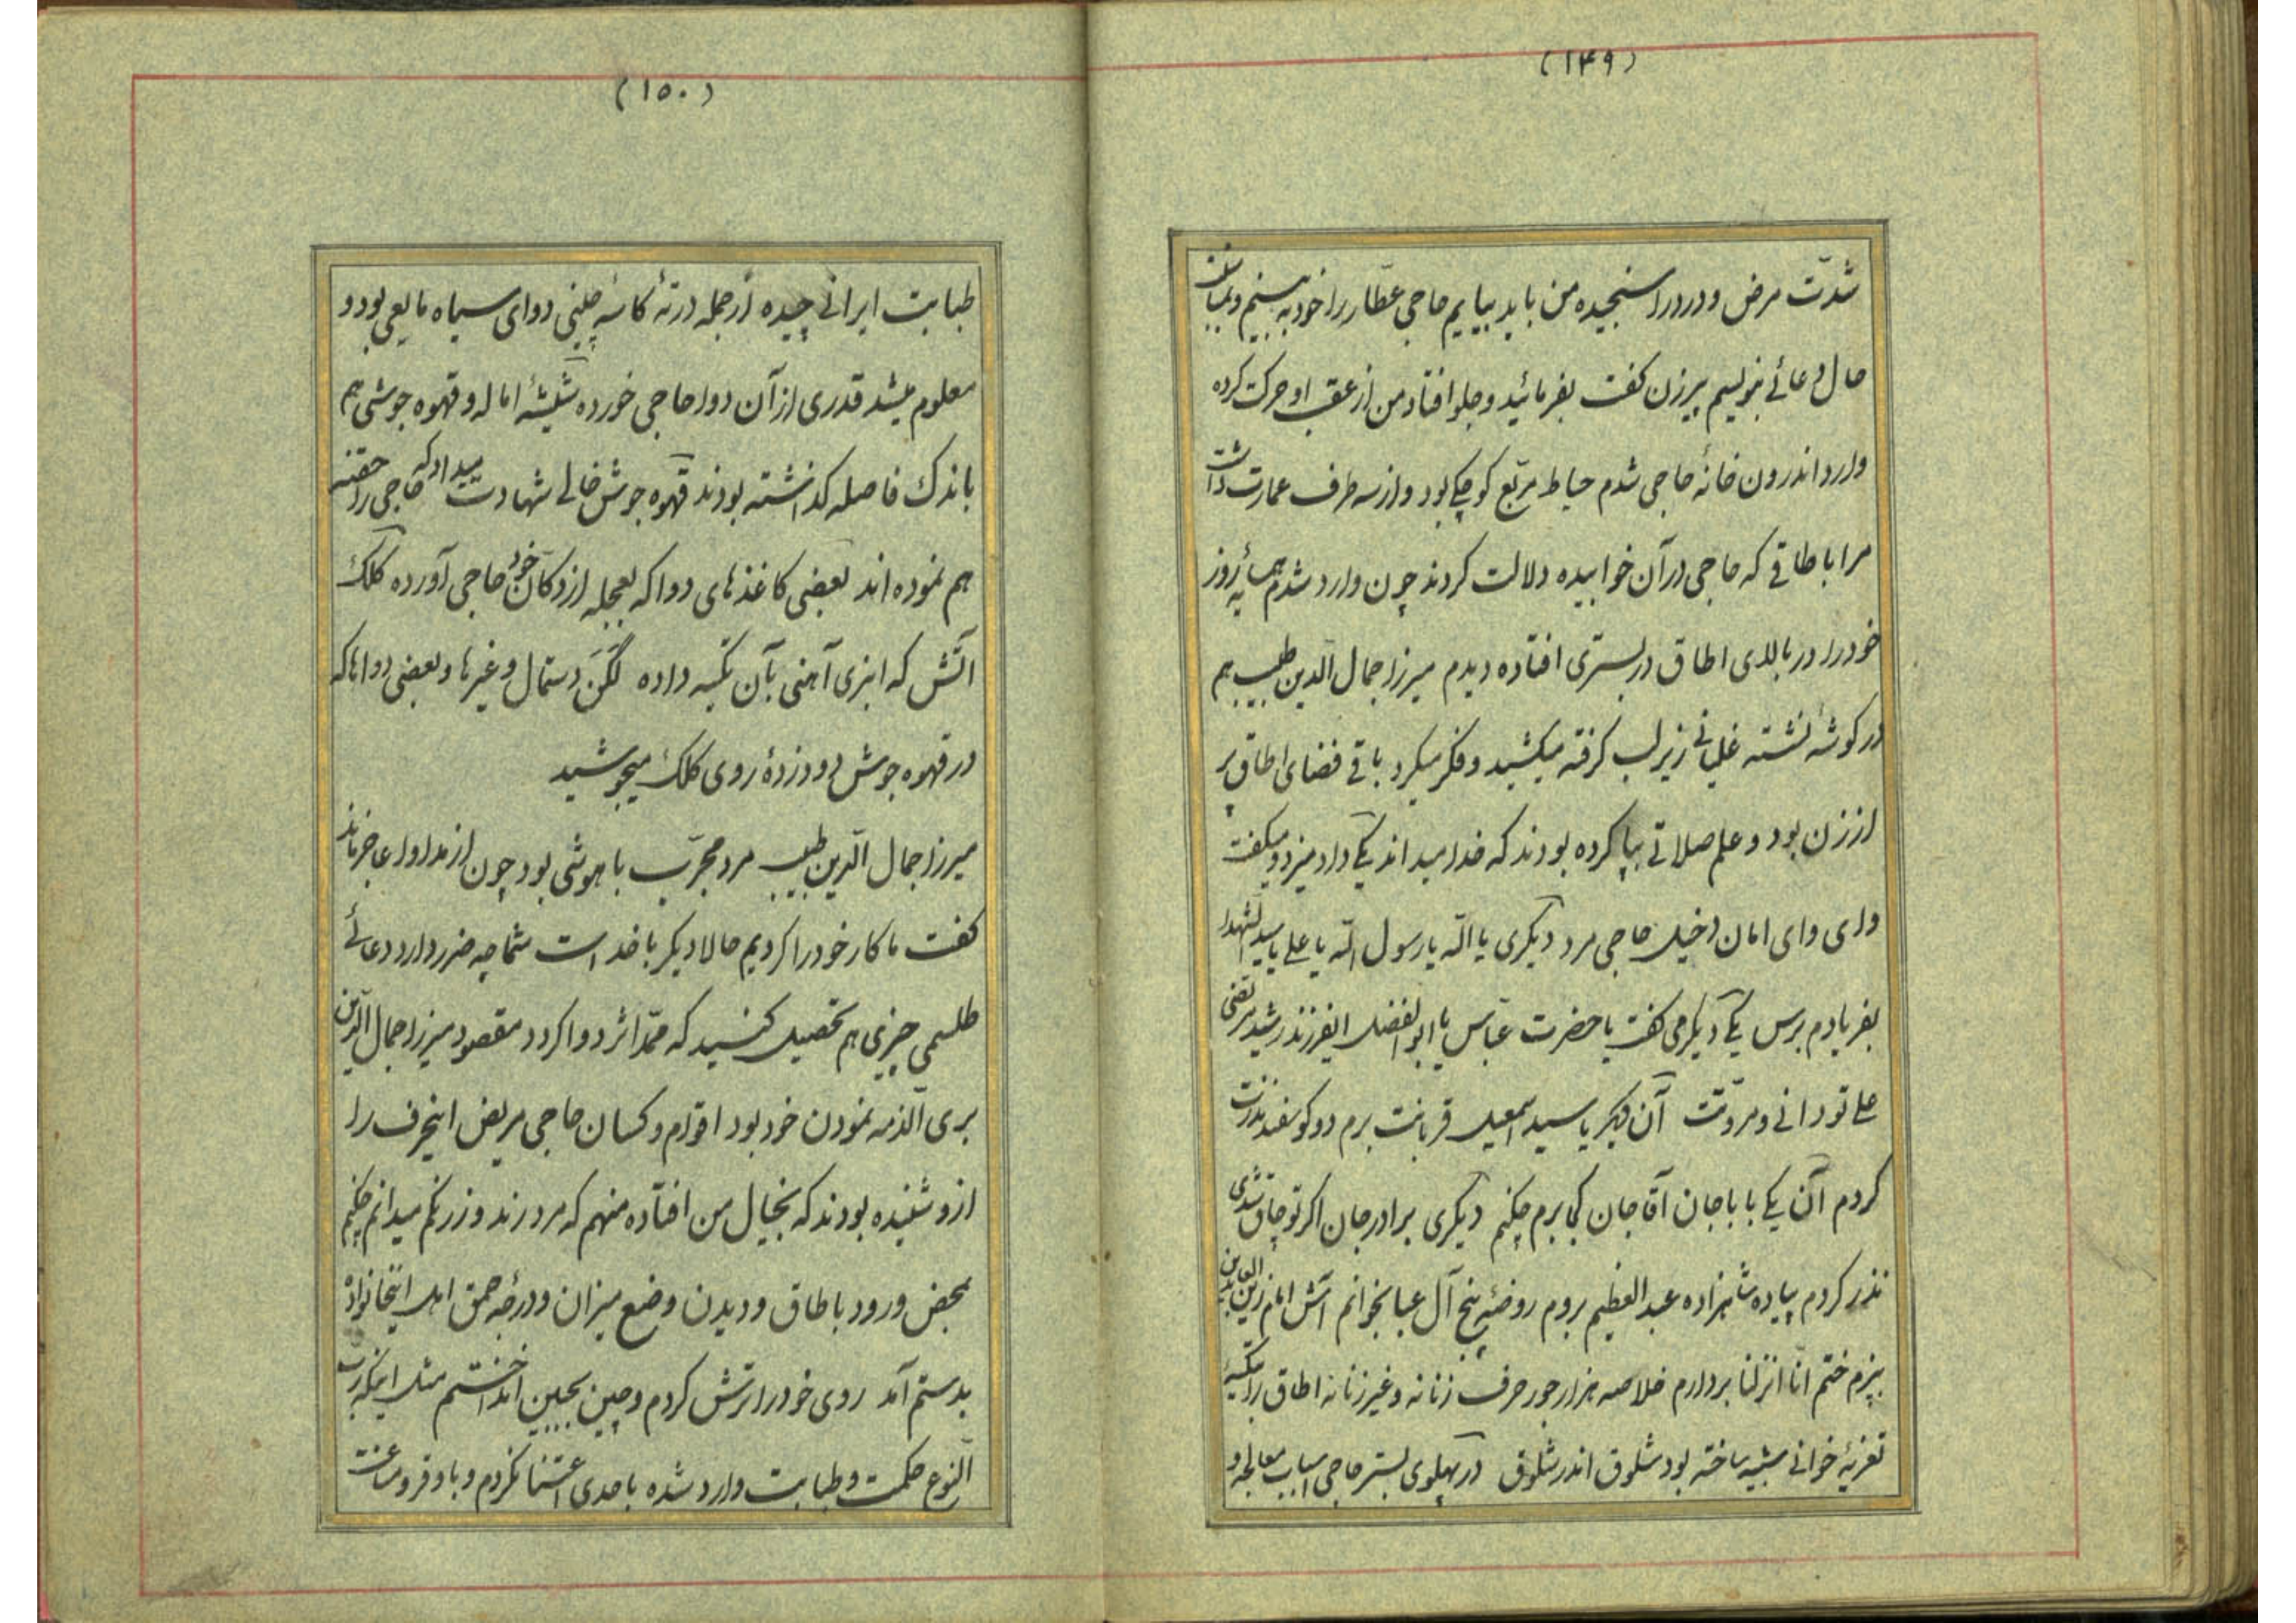 (۱۴۹)
شدّت مرض و درد را سنجیده من باید بیایم حاجی عطّار را خود به بینم و بمناسبت
حال دعائی بنویسم پیرزن کفت بفرمائید و جلو افتاد من از عقب او حرکت کرده
وارد اندرون خانهٔ حاجی شدم حیاط مربّع کوچکی بود و از سه طرف عمارت داشت
مرا باطاقی که حاجی در آن خوابیده دلالت کردند چون وارد شدم همسایهٔ روز
خود را در بالای اطاق در بستری افتاده دیدم میرزا جمال الدین طبیب هم
در کوشهٔ نشته غلیانی زیر لب کرفته میکشید و فکر میکرد باقی فضای اطاق پر
از زن بود و علم صلاتی بپا کرده بودند که خدا میداند یکی داد میزد و میکفت
وای وای امان دخیل حاجی مرد دیکری یا الله یا رسول الله یا علی یا سید الشهدا
بفریادم برس یکی دیکر می کفت یا حضرت عبّاس یا ابوالفضل ایفرزند رشید مرتضی
علی تو دانی و مروّتت آن دیکر یا سید اسمعیل قربانت برم دو کوسفند نذرت
کردم آن یکی باباجان آقاجان کجا برم چکنم دیکری برادرجان اکر تو چاق شدی
نذر کردم پیاده شاهزاده عبدالعظیم بروم روضهٔ پنج آل عبا بخوانم آش امام زین العابدین
بپزم ختم انّا انزلنا بردارم خلاصه هزار جور حرف زنانه و غیر زنانه اطاق را تکیهٔ
تعزیهٔ خوانی شبیه ساخته بود شلوق اندر شلوق در پهلوی بستر حاجی اسباب معالجه و
(۱۵۰)
طبابت ایرانی چیده از جمله در تهٔ کاسهٔ چینی دوای سیاه مایعی بود و
معلوم میشد قدری از آن دوا حاجی خورده شیشهٔ اماله و قهوه جوشی هم
باندک فاصله کذاشته بودند قهوه جوش خالی شهادت میداد که حاجی را حقنه
هم نموده اند بعضی کاغذهای دوا که بعجله از دکان خود حاجی آورده کلک
آتش که انبری آهنی بآن تکیه داده لگن دستمال و غیرها و بعضی دواها که
در قهوه جوش دود زدهٔ روی کلک میجوشید
میرزا جمال الدین طبیب مرد مجرّب با هوشی بود چون از مداوا عاجز ماند
کفت ما کار خود را کردیم حالا دیکر با خداست شما چه ضرر دارد دعائی
طلسمی چیزی هم تحصیل کنید که ممدّ اثر دوا کردد مقصود میرزا جمال الدین
بری الذمه نمودن خود بود اقوام و کسان حاجی مریض اینحرف را
ازو شنیده بودند که بخیال من افتاده منهم که مرد رند و زرنکم میدانم چکنم
بمحض ورود باطاق و دیدن وضع میزان و درجهٔ حمق اهل اینخانواده
بدستم آمد روی خود را ترش کردم و چین بجبین انداختم مثل اینکه رب
النوع حکمت و طبابت وارد شده باحدی اعتنا نکردم و با وقر و مناعت